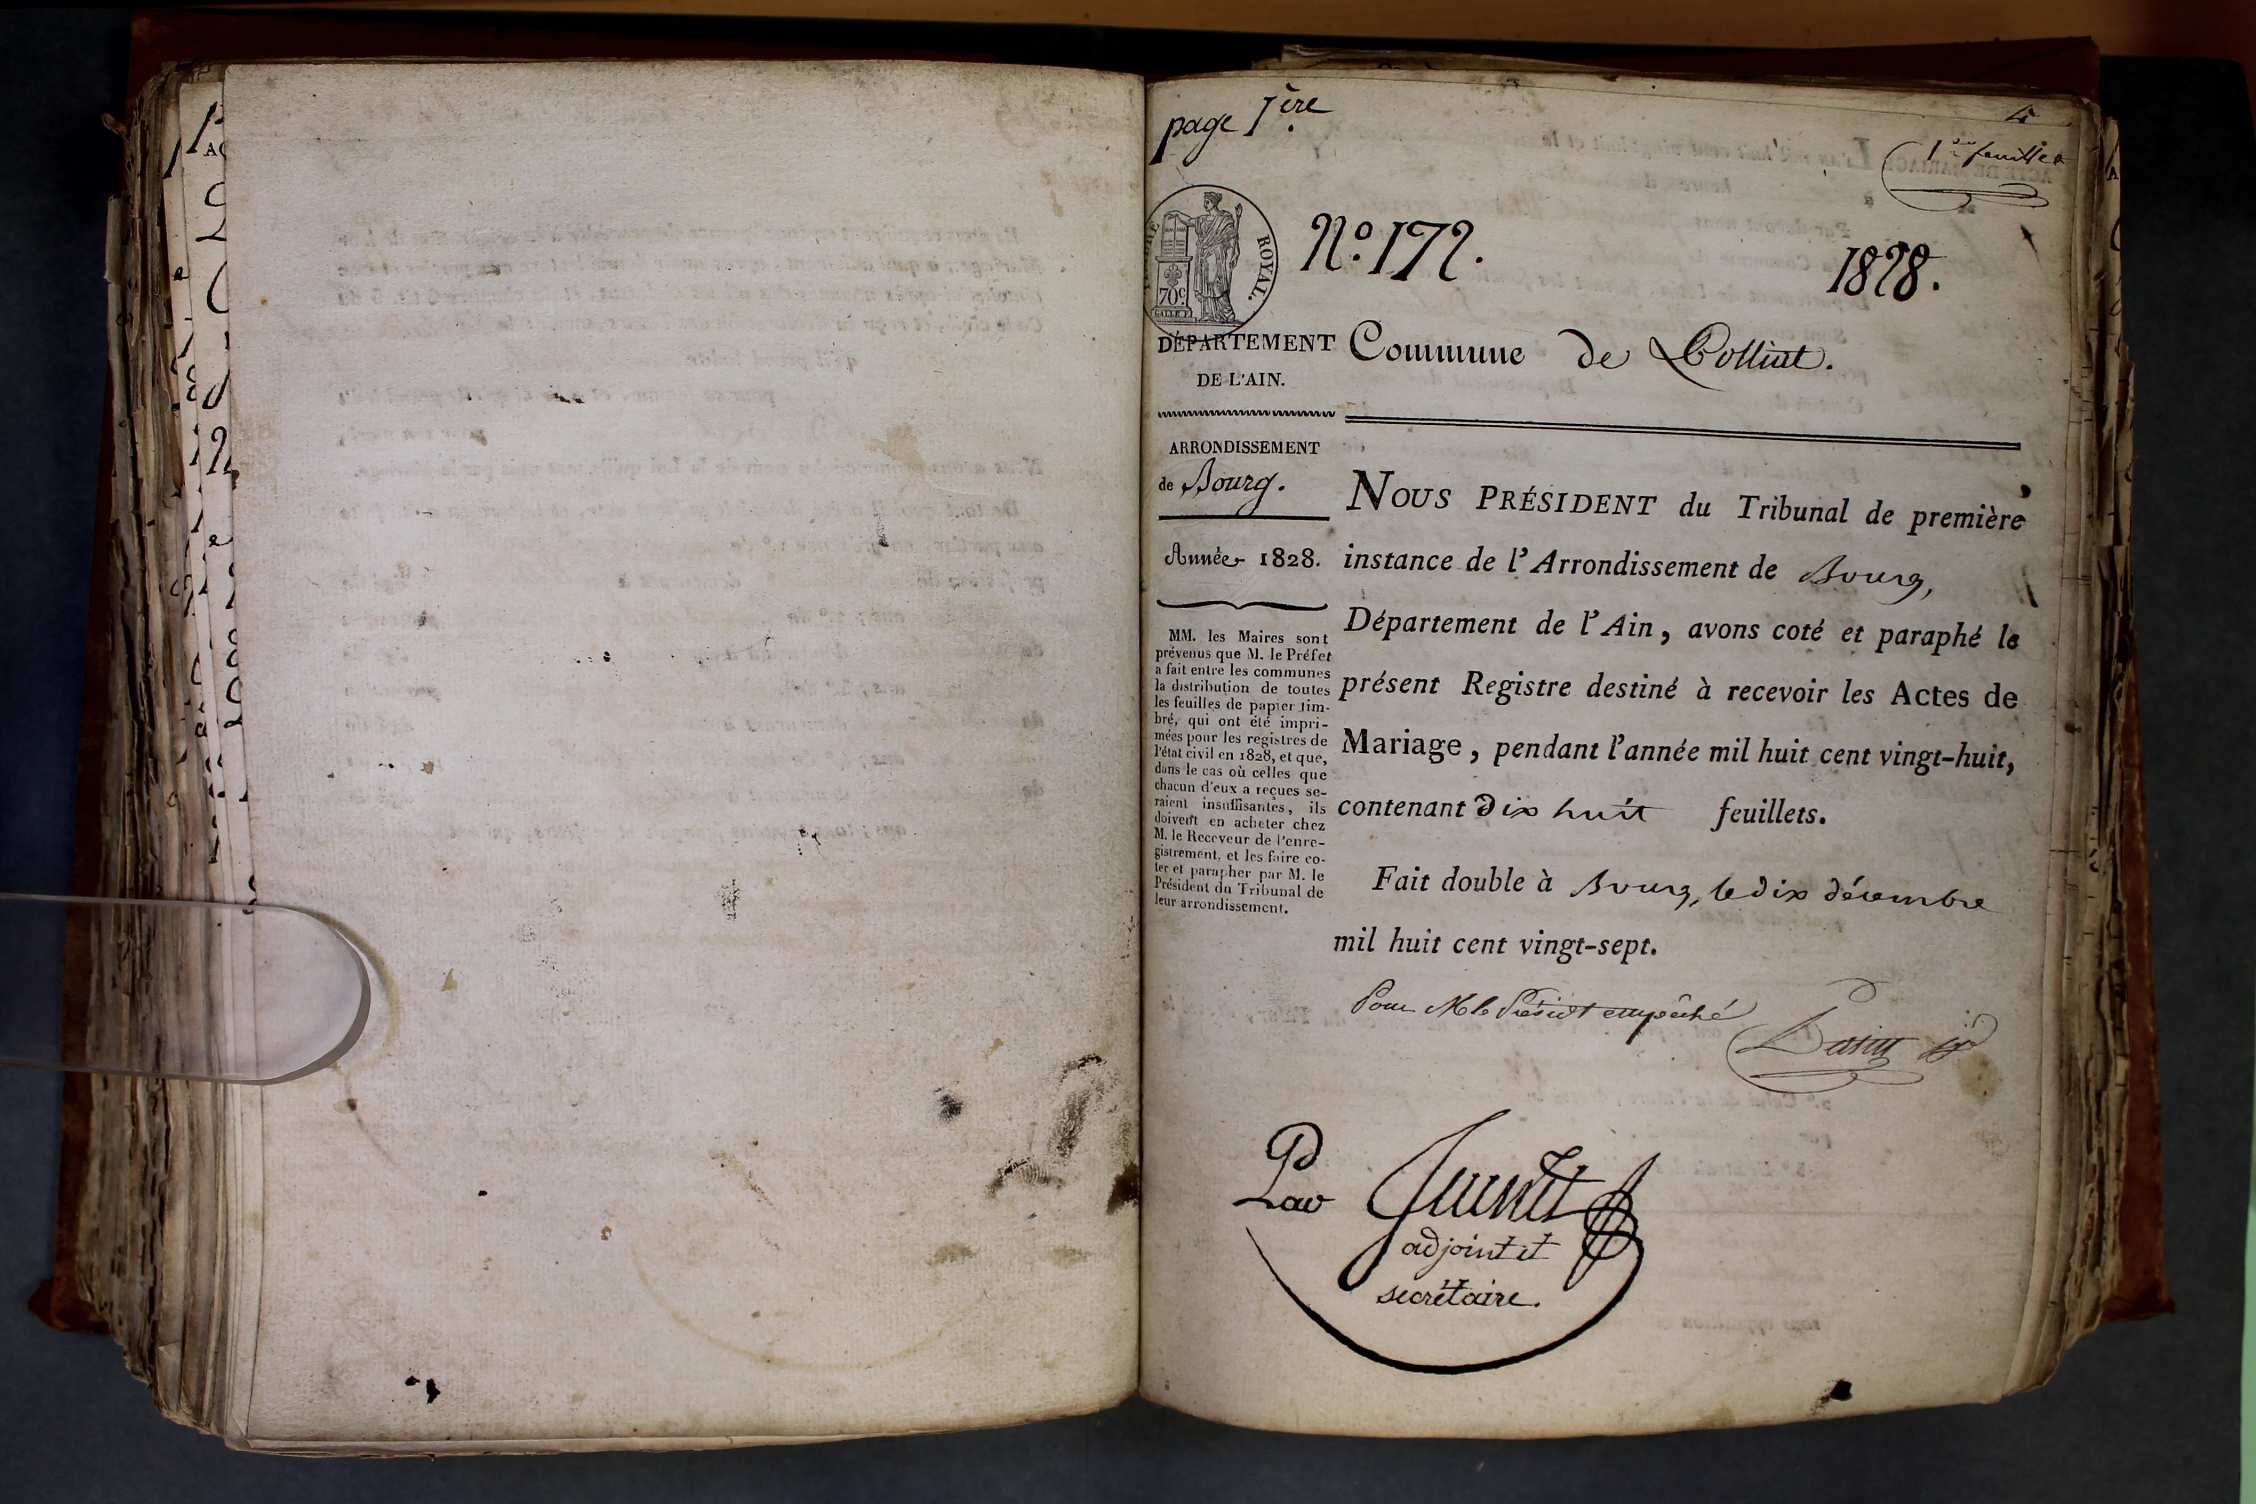 page 1ère
4
1er feuillet
TIMBRE ROYAL.
70c
N.º 172.
1828.
DÉPARTEMENT
DE L'AIN.
Commune de Polliat.
ARRONDISSEMENT
de Bourg.
Année 1828.
MM. les Maires sont
prévenus que M. le Préfet
a fait entre les communes
la distribution de toutes
les feuilles de papier tim-
bré, qui ont été impri-
mées pour les registres de
l'état civil en 1828, et que,
dans le cas où celles que
chacun d'eux a reçues se-
raient insuffisantes, ils
doivent en acheter chez
M. le Receveur de l'enre-
gistrement, et les faire co-
ter et parapher par M. le
Président du Tribunal de
leur arrondissement.
NOUS PRÉSIDENT du Tribunal de première
instance de l'Arrondissement de Bourg,
Département de l'Ain, avons coté et paraphé le
présent Registre destiné à recevoir les Actes de
Mariage, pendant l'année mil huit cent vingt-huit,
contenant dix huit feuillets.
Fait double à Bourg, le dix décembre
mil huit cent vingt-sept.
Pour M le Présidt empêché
Par
adjoint et
secrétaire.